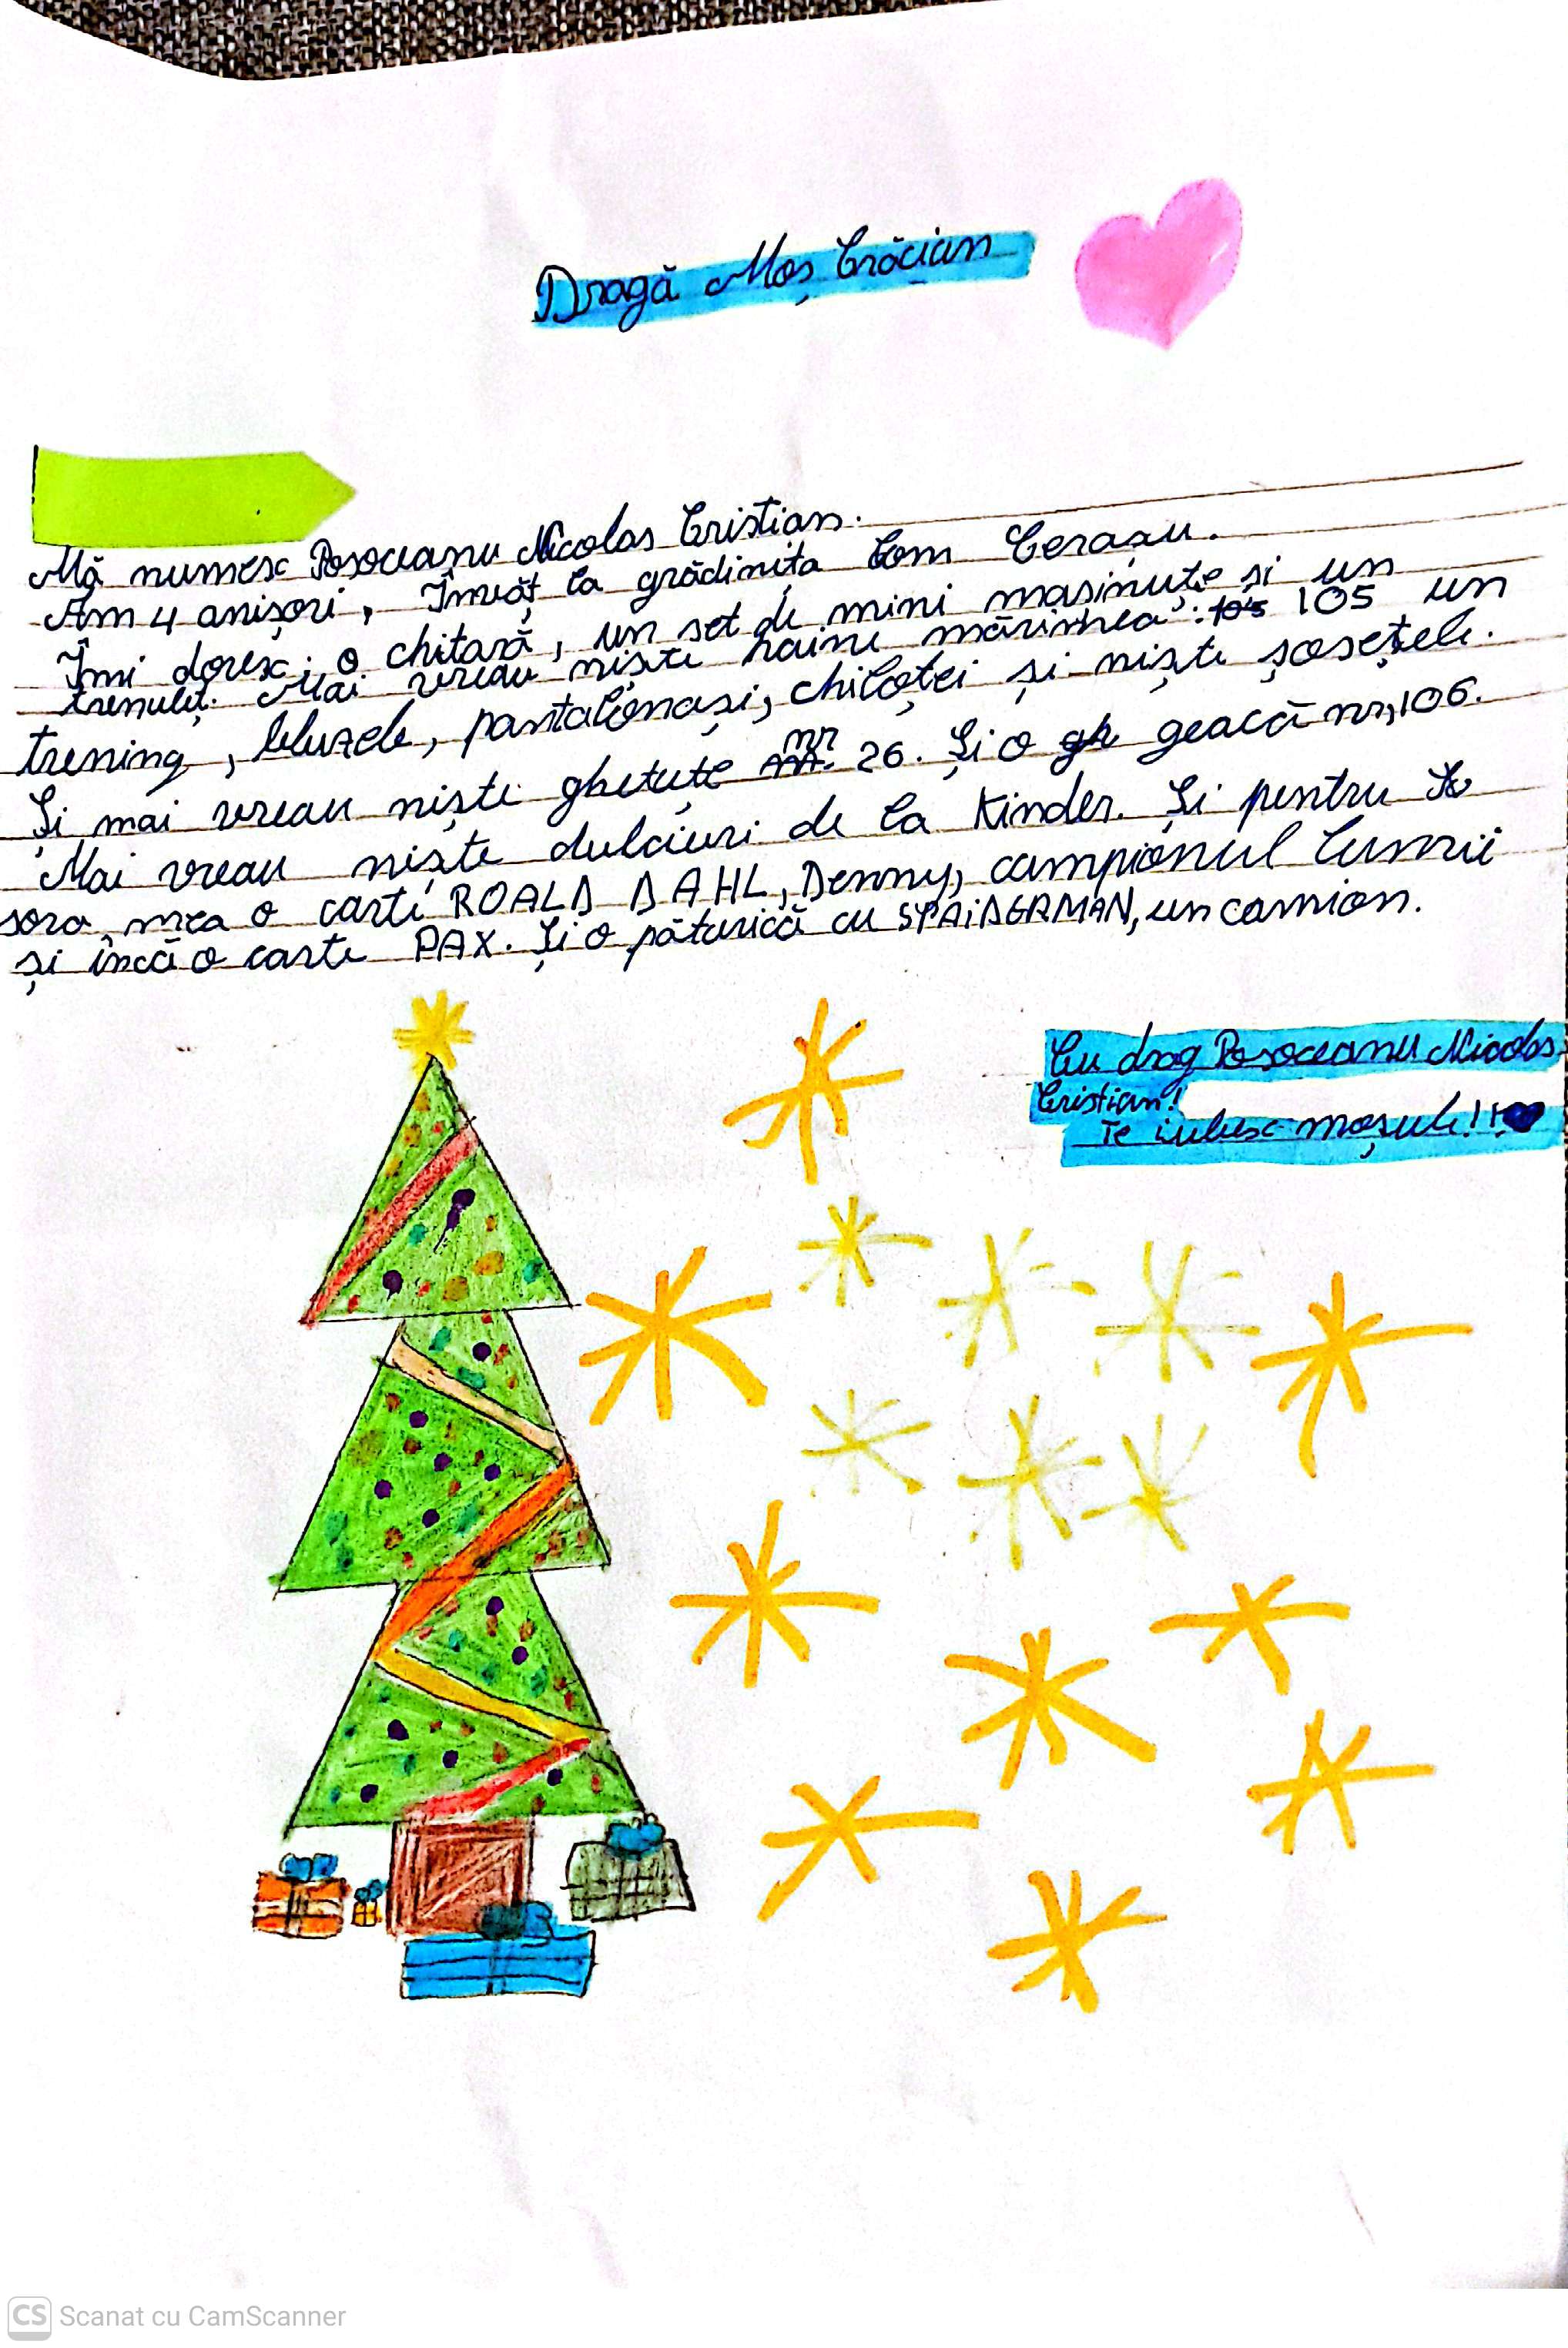 Dragă Moș Crăcian
Mă numesc Posoceanu Nicolas Cristian.
Am 4 anișori, Învăț la grădinița Com Cerașu.
Îmi doresc: o chitară, un set de mini masinuțe și un
trenuleț. Mai vreau niște haine mărimea: 105 105 un
trening, bluzele, pantalonași, chiloței și niște șosețele.
Și mai vreau niște ghetuțe nr 26. Și o gh geacă nr, 106.
Mai vreau niște dulciuri de la Kinder. Și pentru
sora mea o carti ROALD DAHL, Denny, campionul lumii
și încă o carte PAX. Și o păturică cu SPAiDERMAN, un camion.
Cu drag Posoceanu Nicolas
Cristian!
Te iubesc moșule!!!
CS Scanat cu CamScanner